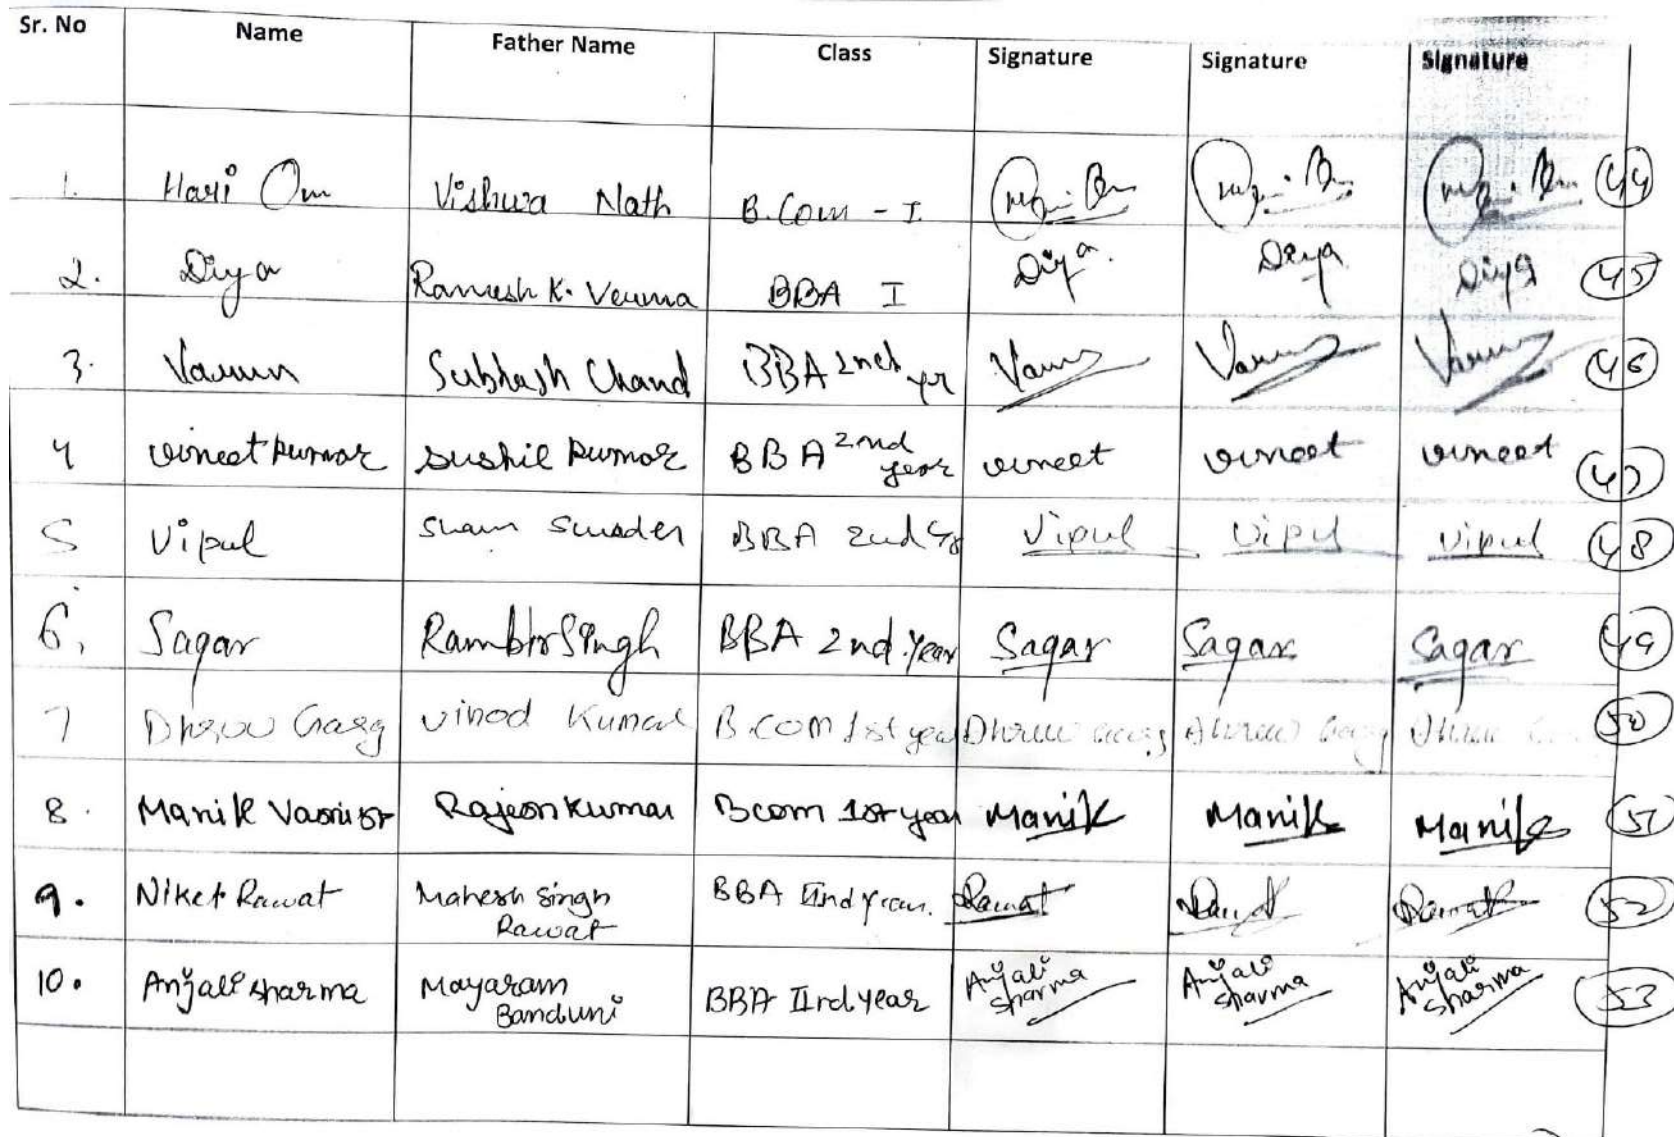 Sr. No Name Father Name Class Signature Signature Signature
1. Hari Om Vishwa Nath B.Com - I 44
2. Diya Ramesh K. Verma BBA I Diya Diya Diya 45
3. Varun Subhash Chand BBA 2nd yr Varun Varun Varun 46
4 vineet kumar sushil kumar BBA 2nd year vineet vineet vineet 47
5 Vipul Sham Sunder BBA 2nd yr Vipul Vipul Vipul 48
6. Sagar Rambir Singh BBA 2nd year Sagar Sagar Sagar 49
7 Dhruv Garg Vinod Kumar B.COM 1st year Dhruv Garg Dhruv Garg Dhruv 50
8. Manik Rajesh Kumar Bcom 1st year Manik Manik Manik 51
9. Niket Rawat Mahesh Singh Rawat BBA IInd year. Rawat Rawat Rawat 52
10. Anjali sharma Mayaram Banduni BBA IIrd year Anjali sharma Anjali sharma Anjali sharma 53